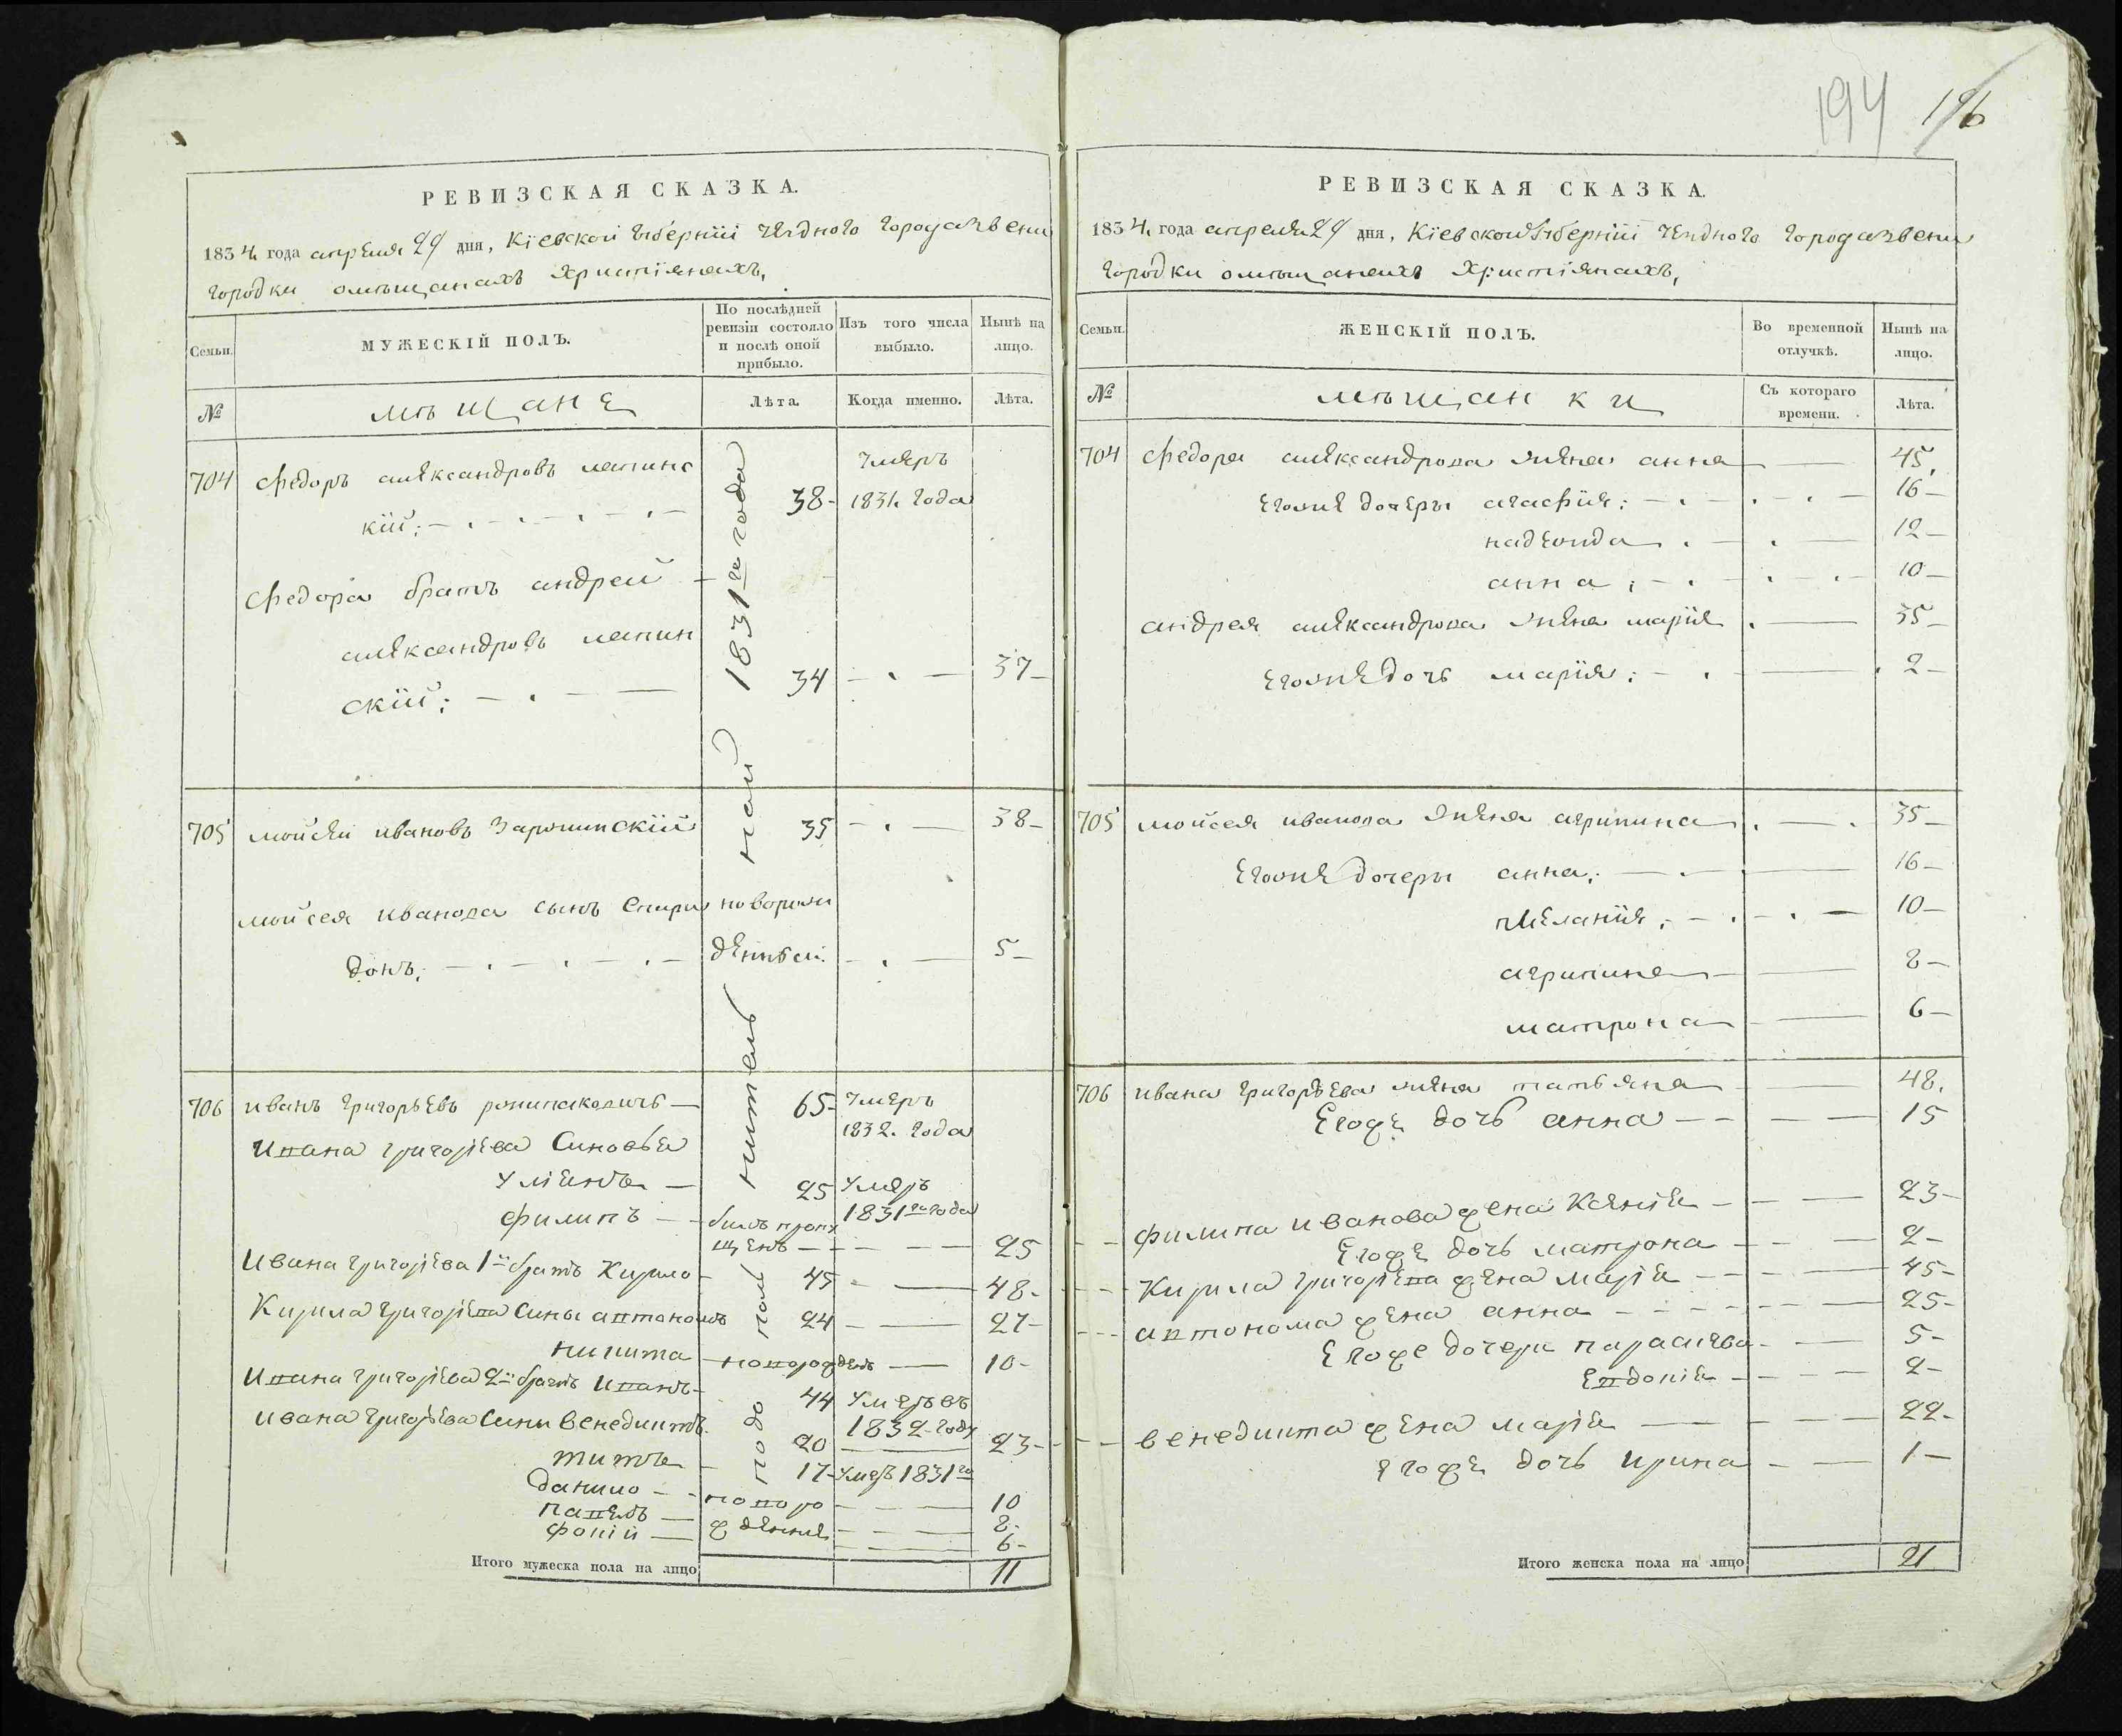 194 196
РЕВИЗСКАЯ СКАЗКА.
1834 года апреля 29 дня, Кіевской губерніи уездного города звени
городки о мѣщанахъ христіянахъ,
Семьи. МУЖЕСКІЙ ПОЛЪ. По послѣдней ревизіи состояло и послѣ оной прибыло. Изъ того числа выбыло. Нынѣ на лицо.
№ мѣщане Лѣта. Когда именно. Лѣта.
704 Федоръ александровъ лапинс
умеръ
кій: 38 1831 года
Федора братъ андрей
александровъ лапин
скій: 34 37
705 мойсей ивановъ 35 38
мойсея иванова сынъ спири новорож
донъ: денный 5
706 иванъ григорьевъ 65 умеръ
1832 года
ивана григорьева синовья
25 умеръ
1831го года
филипъ билъ пропу
щенъ 25
Ивана григорьева 1й братъ Кирило 45 48
Кирила григорьева сины антономъ 24 27
никита новорожденъ 10
Ивана григорьева 2й братъ Иванъ 44 умеръ въ
1832 году
ивана григорьева сини венедиктъ 20 23
титъ 17 умеръ 1831го
данило новоро 10
павелъ жденные 8
фокій 6
по 1831го года
Итого мужеска пола на лицо 11
РЕВИЗСКАЯ СКАЗКА.
1834 года апреля 29 дня, Кіевской губерніи уездного города звени
городки о мѣщанахъ христіянахъ,
Семьи. ЖЕНСКІЙ ПОЛЪ. Во временной отлучкѣ. Нынѣ на лицо.
№ мѣщанки Съ котораго времени. Лѣта.
704 Федора александрова жена анна 45
егоже дочеры агафія: 16
надежда 12
анна: 10
андрея александрова жена марія 35
егоже дочь марія: 2
705 мойсея иванова жена агрипина 35
егоже дочеры анна: 16
меланія: 10
агрипина 8
матрона 6
706 ивана григорьева жена татьяна 48
егоже дочь анна 15
филипа иванова жена Ксенія 23
егоже дочь матрона 2
Кирила григорьева жена марія 45
антонома жена анна 25
егоже дочери параскева 5
евдокія 2
венедикта жена марія 22
егоже дочь ирина 1
Итого женска пола на лицо 21